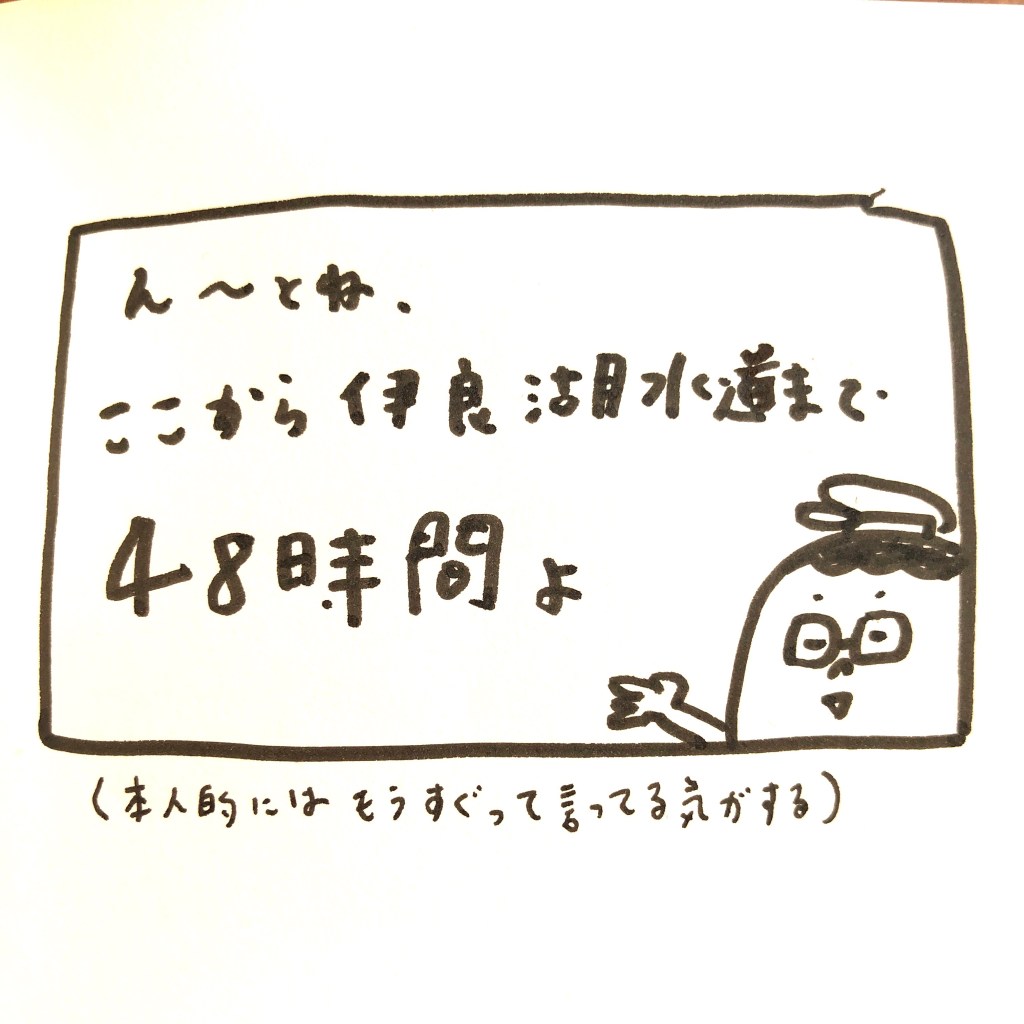 ん〜とね、
ここから伊良湖水道まで
48時間よ
(本人的にはもうすぐって言ってる気がする)